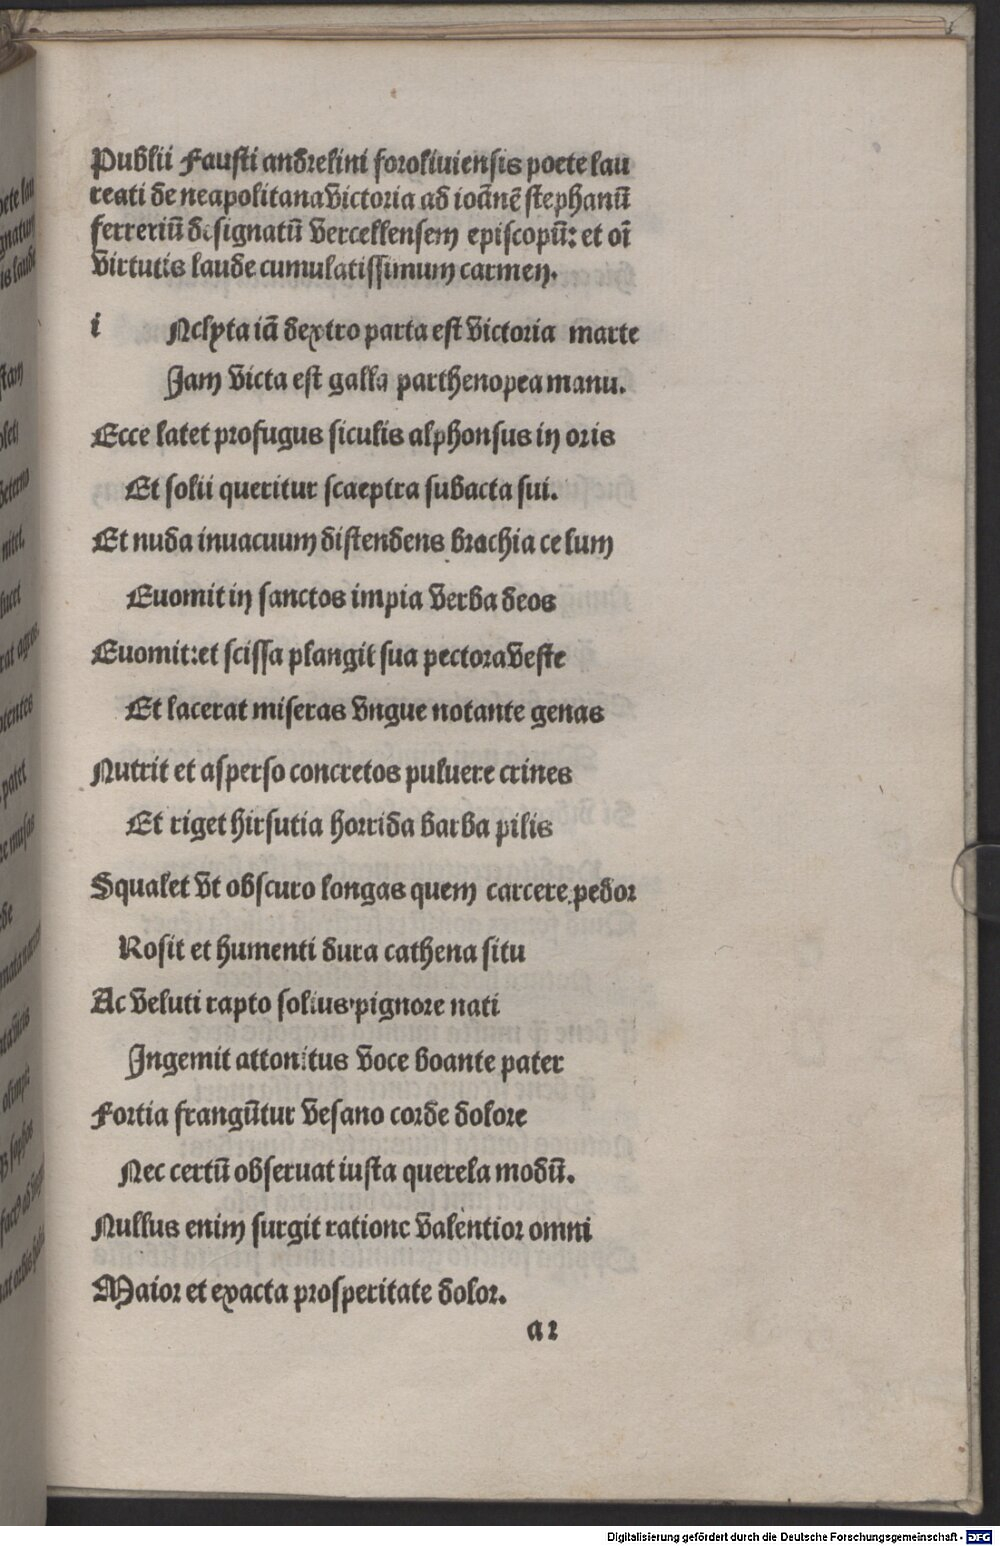 Publii Fausti andrelini foroliuiensis poete lau
reati de neapolitana victoria ad ioānē stephanū
ferreriū designatū vercellensem episcopū: et oī
virtutis laude cumulatissimum carmen.
i Nclyta iā dextro parta est victoria marte
Jam victa est galla parthenopea manu.
Ecce latet profugus siculis alphonsus in oris
Et solii queritur scaeptra subacta sui.
Et nuda inuacuum distendens brachia celum
Euomit in sanctos impia verba deos
Euomit:et scissa plangit sua pectora veste
Et lacerat miseras vngue notante genas
Nutrit et asperso concretos puluere crines
Et riget hirsutia horrida barba pilis
Squalet vt obscuro longas quem carcere pedor
Rosit et humenti dura cathena situ
Ac veluti rapto solius pignore nati
Jngemit attonitus voce boante pater
Fortia frangūtur vesano corde dolore
Nec certū obseruat iusta querela modū.
Nullus enim surgit ratione valentior omni
Maior et exacta prosperitate dolor.
a2
Digitalisierung gefördert durch die Deutsche Forschungsgemeinschaft - DFG